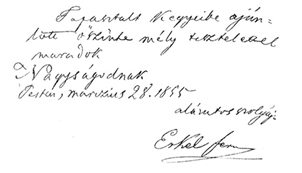 Tapasztalt kegyeibe aján-
lott őszinte mély tisztelettel
maradok
Nagyságodnak
Pesten, márczius 28. 1855
alázatos szolgája
Erkel Feren